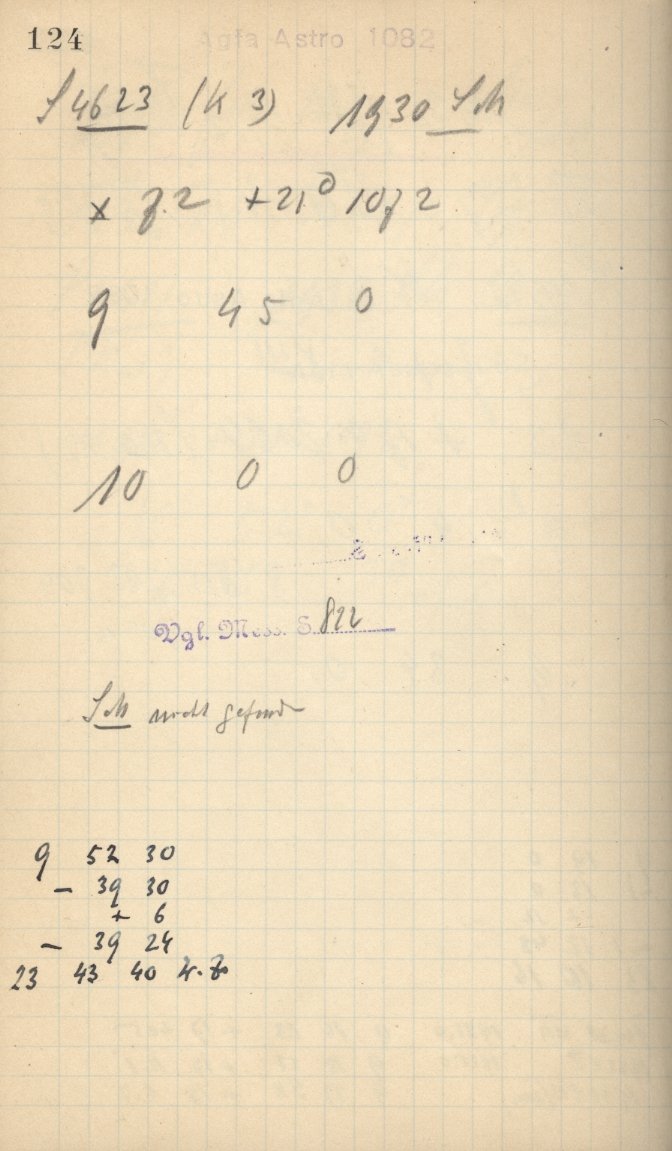 124
Agfa Astro 1082
S 4623 (K 3) 1930 SM
9 45 0
10 0 0
Vgl. Mess. S. 822
SM nicht gefunden
9 52 30
- 39 30
+ 6
- 39 24
23 43 40